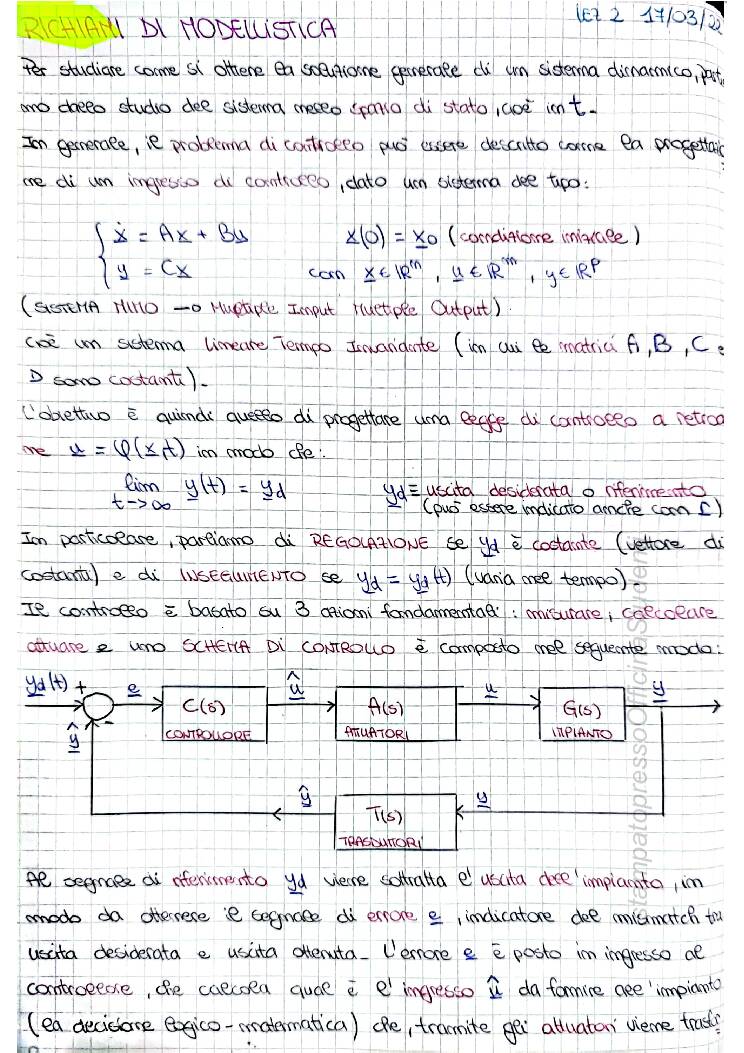 RICHIAMI DI MODELLISTICA
LEZ 2 17/03/22
Per studiare come si ottiene la soluzione generale di un sistema dinamico, part
mo dallo studio del sistema nello spazio di stato, cioè in t.
In generale, il problema di controllo può essere descritto come la progettazio
ne di un ingresso di controllo, dato un sistema del tipo:
{ ẋ = Ax + Bu x(0) = x0 (condizione iniziale)
y = Cx con x ∈ ℝⁿ, u ∈ ℝᵐ, y ∈ ℝᵖ
(SISTEMA MIMO → Multiple Input Multiple Output)
cioè un sistema Lineare Tempo Invariante (in cui le matrici A, B, C e
D sono costanti).
L'obiettivo è quindi quello di progettare una legge di controllo a retroa
ne u = φ(x,t) in modo che:
lim t→∞ y(t) = yd yd ≡ uscita desiderata o riferimento
(può essere indicato anche con r)
In particolare, parliamo di REGOLAZIONE se yd è costante (vettore di
costanti) e di INSEGUIMENTO se yd = yd(t) (varia nel tempo).
Il controllo è basato su 3 azioni fondamentali: misurare, calcolare
attuare e uno SCHEMA DI CONTROLLO è composto nel seguente modo:
yd(t) + e C(s) û A(s) u G(s) y
CONTROLLORE ATTUATORI IMPIANTO
ŷ -
ŷ T(s) y
TRASDUTTORI
Al segnale di riferimento yd viene sottratta l'uscita dell'impianto, in
modo da ottenere il segnale di errore e, indicatore del mismatch tra
uscita desiderata e uscita ottenuta. L'errore e è posto in ingresso al
controllore, che calcola qual è l'ingresso û da fornire all'impianto
(la decisione logico-matematica) che, tramite gli attuatori viene trasfe
StampatopressoOfficinaStudenti